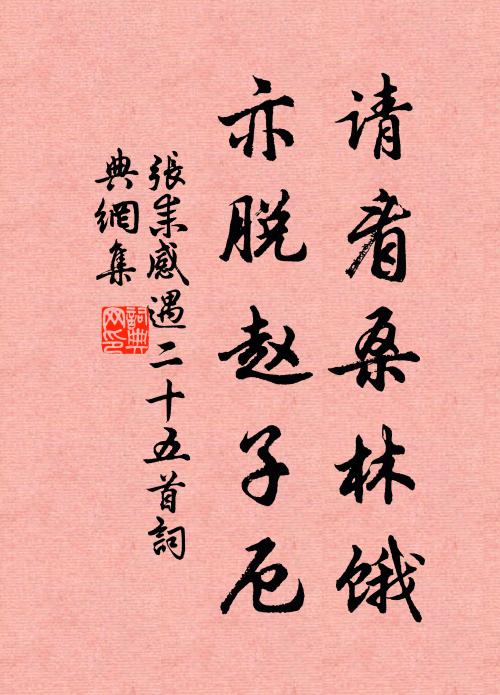 请看桑林饿
亦脱赵子厄
張耒感遇二十五首詞
典網集
詞典
网印